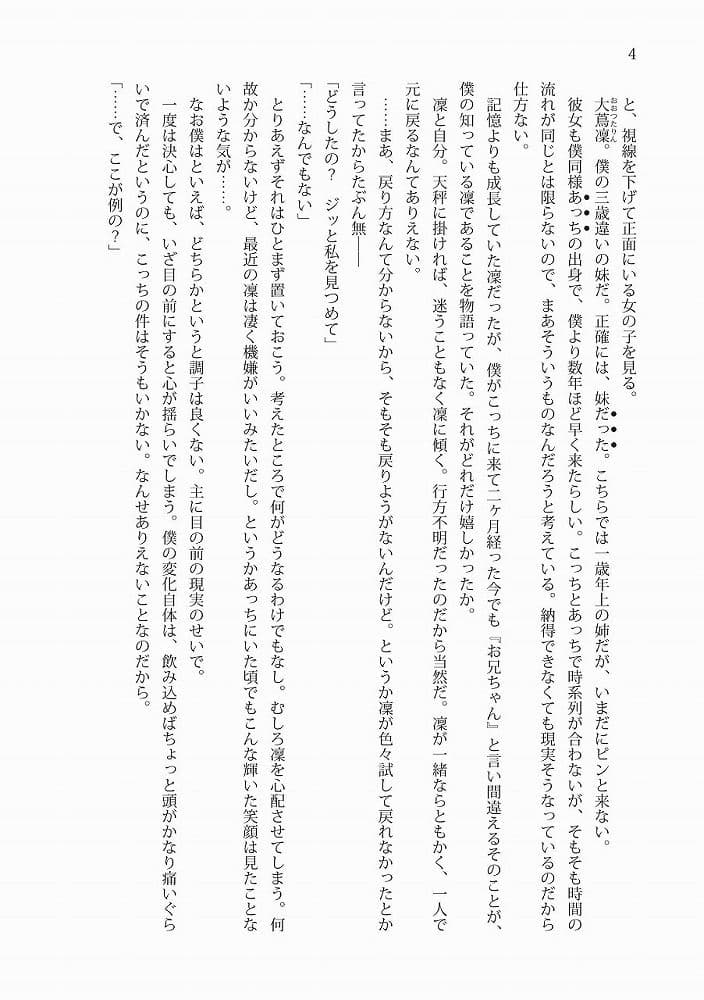 4
と、視線を下げて正面にいる女の子を見る。
大蔦凜。僕の三歳違いの妹だ。正確には、妹だった。こちらでは一歳年上の姉だが、いまだにピンと来ない。
おおつたりん
彼女も僕同様あっちの出身で、僕より数年ほど早く来たらしい。こっちとあっちで時系列が合わないが、そもそも時間の
流れが同じとは限らないので、まあそういうものなんだろうと考えている。納得できなくても現実そうなっているのだから
仕方ない。
記憶よりも成長していた凜だったが、僕がこっちに来て二ヶ月経った今でも『お兄ちゃん』と言い間違えるそのことが、
僕の知っている凜であることを物語っていた。それがどれだけ嬉しかったか。
凜と自分。天秤に掛ければ、迷うこともなく凜に傾く。行方不明だったのだから当然だ。凜が一緒ならともかく、一人で
元に戻るなんてありえない。
……まあ、戻り方なんて分からないから、そもそも戻りようがないんだけど。というか凜が色々試して戻れなかったとか
言ってたからたぶん無――
「どうしたの？　ジッと私を見つめて」
「……なんでもない」
とりあえずそれはひとまず置いておこう。考えたところで何がどうなるわけでもなし。むしろ凜を心配させてしまう。何
故か分からないけど、最近の凜は凄く機嫌がいいみたいだし。というかあっちにいた頃でもこんな輝いた笑顔は見たことな
いような気が……。
なお僕はといえば、どちらかというと調子は良くない。主に目の前の現実のせいで。
一度は決心しても、いざ目の前にすると心が揺らいでしまう。僕の変化自体は、飲み込めばちょっと頭がかなり痛いぐら
いで済んだというのに、こっちの件はそうもいかない。なんせありえないことなのだから。
「……で、ここが例の？」